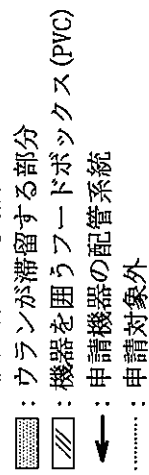 ：ウランが滞留する部分
：機器を囲うフードボックス(PVC)
：申請機器の配管系統
：申請対象外